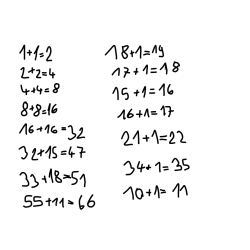 1+1=2
2+2=4
4+4=8
8+8=16
16+16=32
32+15=47
33+18=51
55+11=66
18+1=19
17+1=18
15+1=16
16+1=17
21+1=22
34+1=35
10+1=11